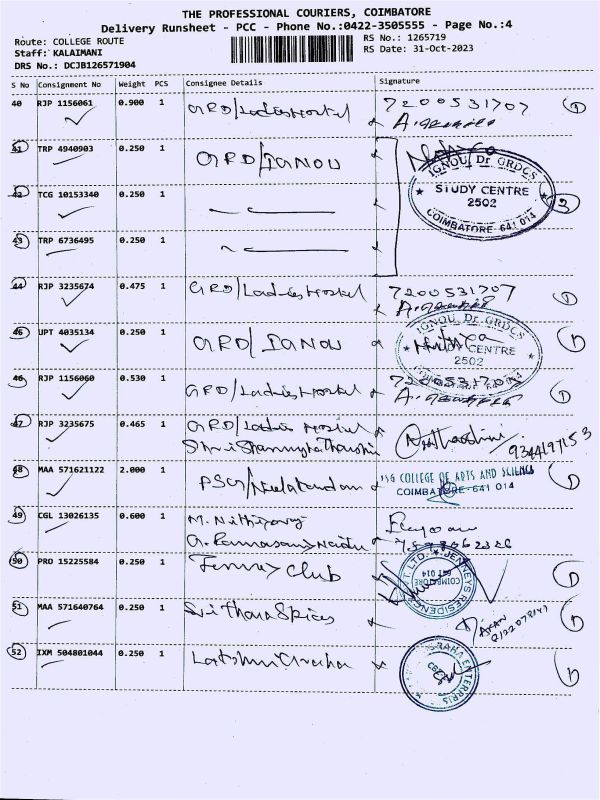 THE PROFESSIONAL COURIERS, COIMBATORE
Delivery Runsheet - PCC - Phone No.:0422-3505555 - Page No.:4
Route: COLLEGE ROUTE
RS No.: 1265719
Staff: KALAIMANI
RS Date: 31-Oct-2023
DRS No.: DCJB126571904
S No Consignment No Weight PCS Consignee Details Signature
40 RJP 1156061 0.900 1 GRD/Ladies Hostel 7200531707 1
41 TRP 4940903 0.250 1 GRD/IGNOU
IGNOU Dr GRDCS
STUDY CENTRE
2502
COIMBATORE 641 014
42 TCG 10153340 0.250 1 3
43 TRP 6736495 0.250 1
44 RJP 3235674 0.475 1 GRD/Ladies Hostel 7200531707 1
45 UPT 4035134 0.250 1 GRD/IGNOU 1
IGNOU Dr. GRDCS
STUDY CENTRE
2502
46 RJP 1156060 0.530 1 GRD/Ladies Hostel 7200531707 1
47 RJP 3235675 0.465 1 GRD/Ladies Hostel
9344197153
48 MAA 571621122 2.000 1 PSG/Neelakandan 1
PSG COLLEGE OF ARTS AND SCIENCE
COIMBATORE-641 014
49 CGL 13026135 0.600 1
50 PRO 15225584 0.250 1 Jenney Club 1
JENNEYS RESIDENCY PVT LTD.
COIMBATORE
641 014
51 MAA 571640764 0.250 1 Sri Thara Spices 1
52 IXM 504801044 0.250 1 1